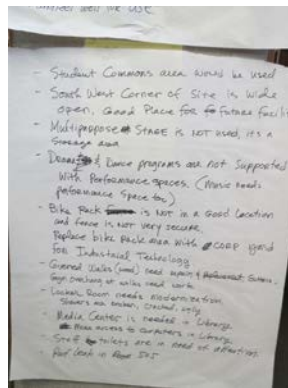 - Student Commons area would be used
- South West Corner of Site is wide
open, Good Place for future facilit
- Multipurpose Stage is not used, its a
Storage area
- Drama & Dance programs are not supported
with Performance spaces. (Music needs
performance space too)
- Bike Rack is not in a good location
and fence is not very secure.
Replace bike rack area with CORP yard
for Industrial Technology
- Covered Walks need repair &
overhang at walks need work
- Locker Room needs modernization
Showers are broken, cracked, ugly
- Media Center is needed in Library.
More access to computers in Library.
- Staff toilets are in need of attention
- Roof leak in Room